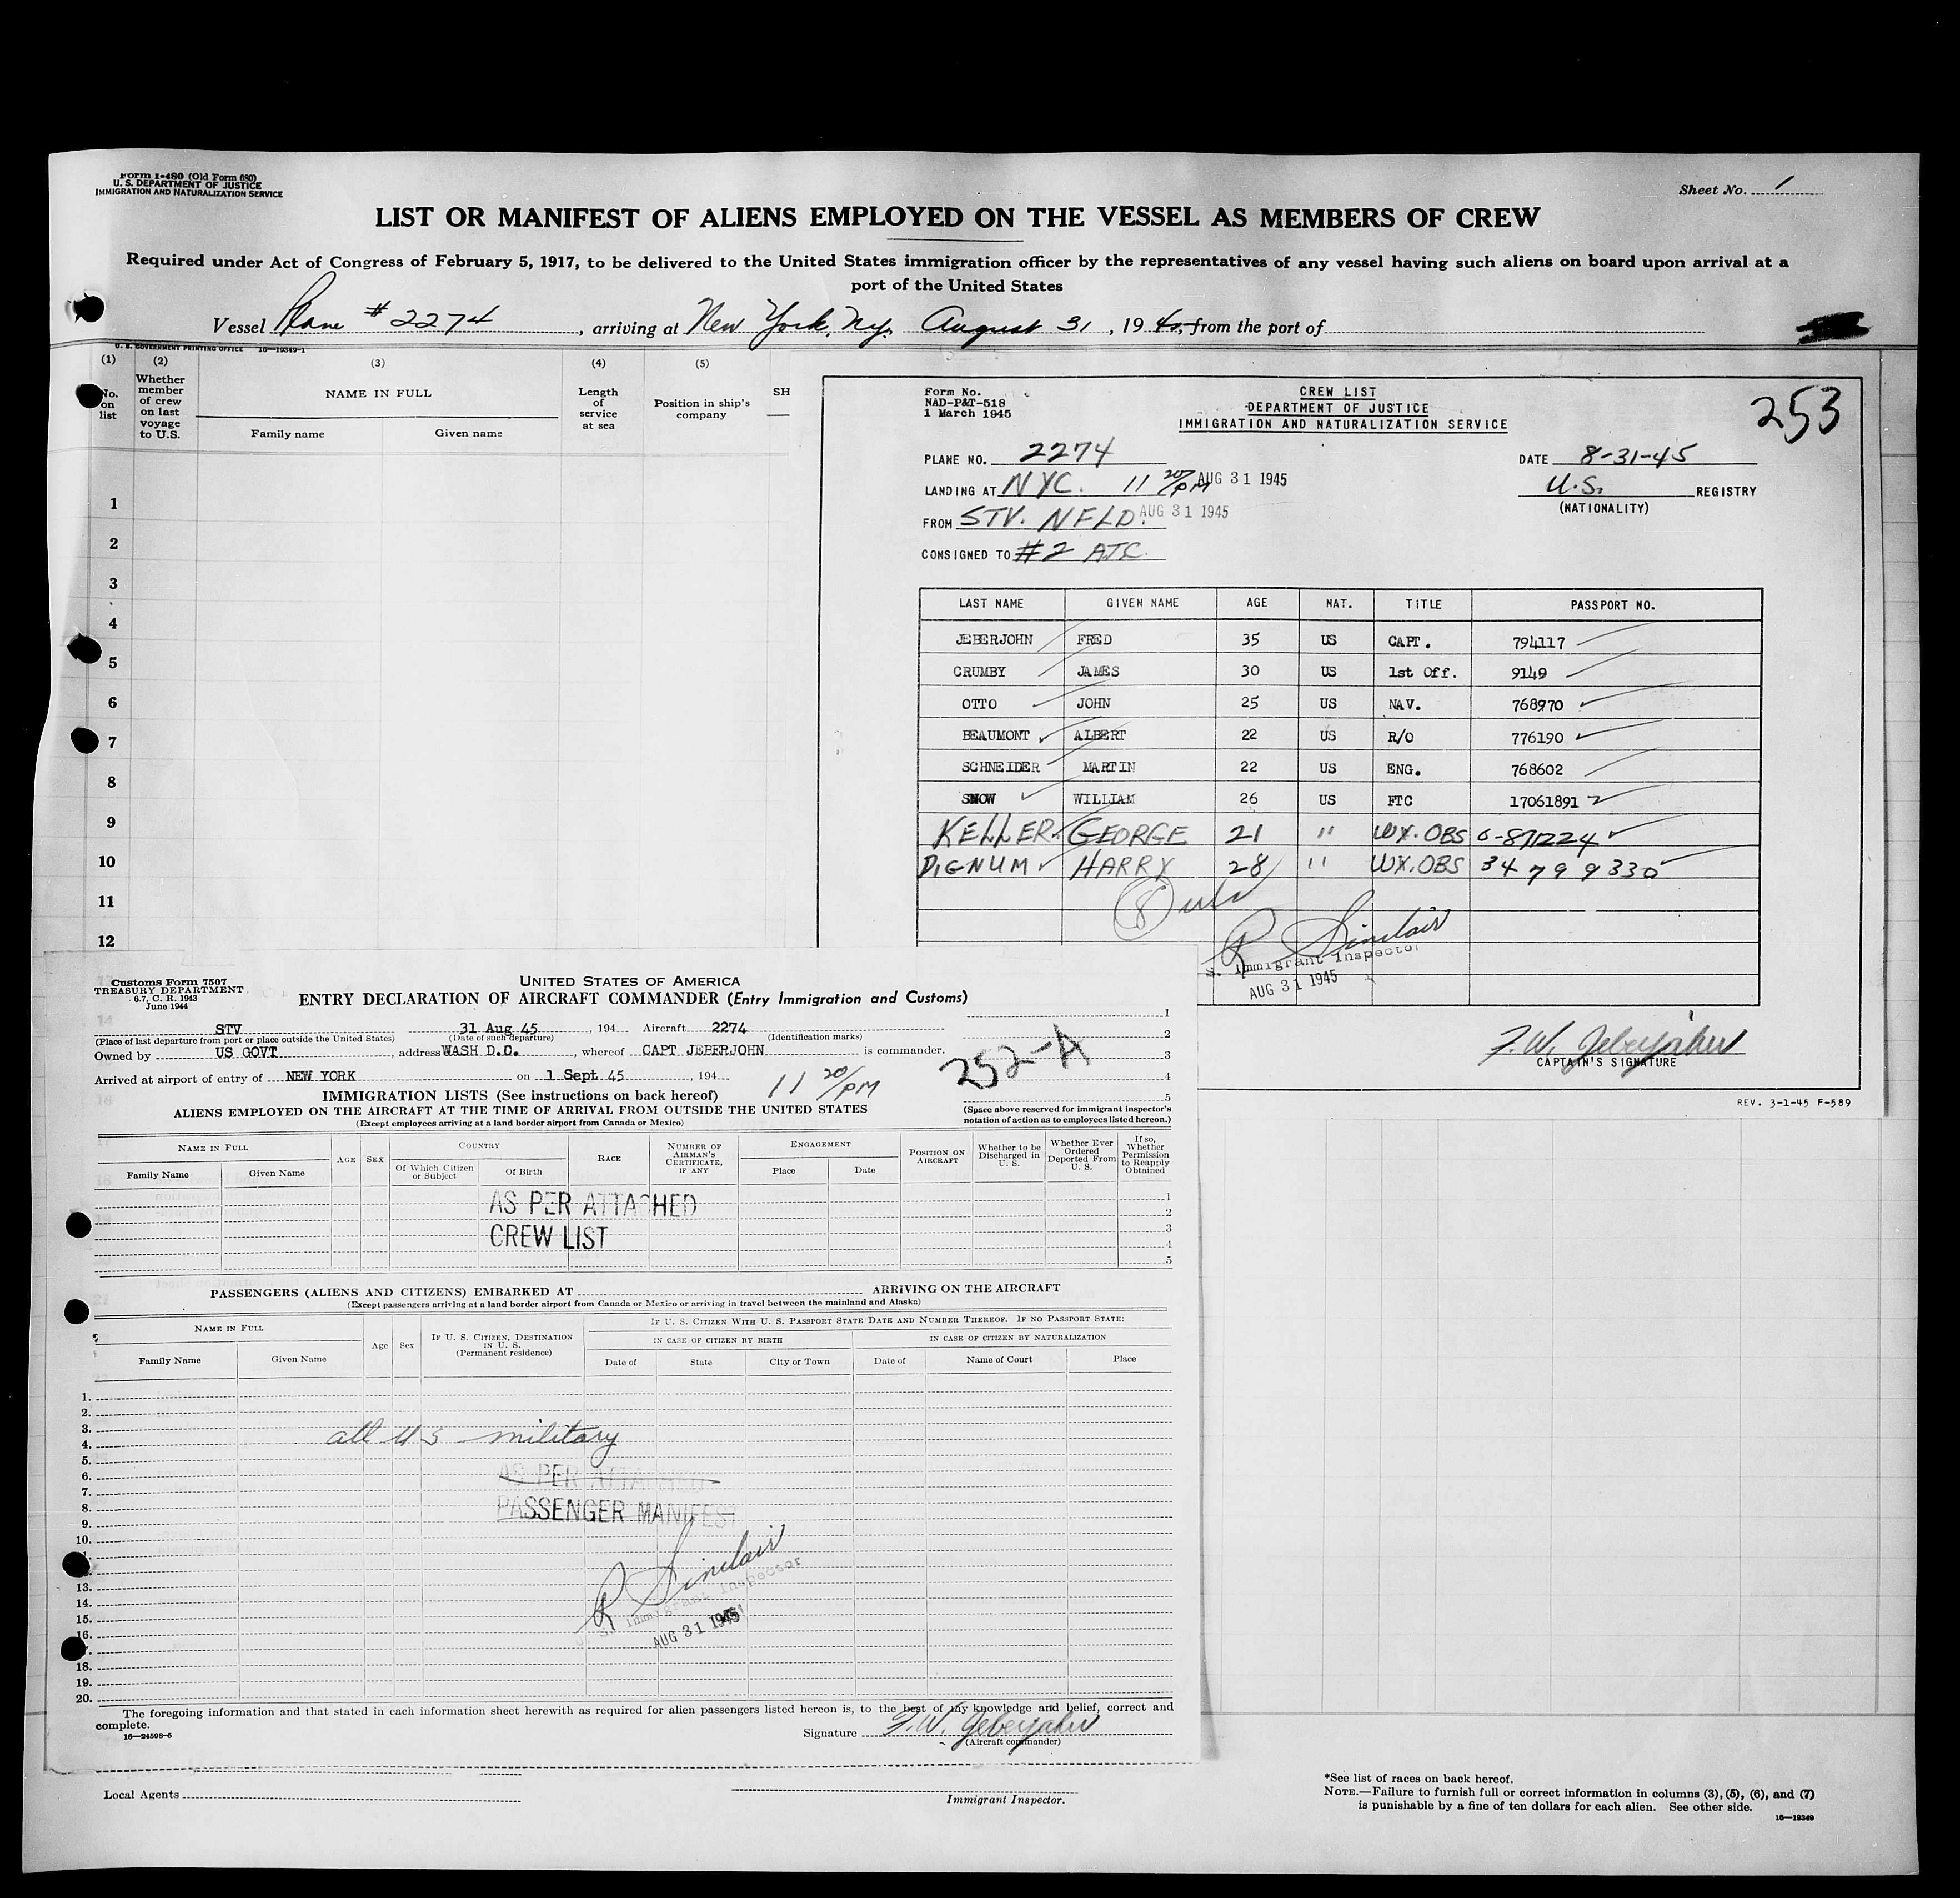 Form I-480 (Old Form 680)
U. S. DEPARTMENT OF JUSTICE
IMMIGRATION AND NATURALIZATION SERVICE
Sheet No. 1
LIST OR MANIFEST OF ALIENS EMPLOYED ON THE VESSEL AS MEMBERS OF CREW
Required under Act of Congress of February 5, 1917, to be delivered to the United States immigration officer by the representatives of any vessel having such aliens on board upon arrival at a
port of the United States
Vessel Plane # 2274, arriving at New York, N.Y. August 31, 1945, from the port of
U. S. GOVERNMENT PRINTING OFFICE 16—19349-1
(1) (2) (3) (4) (5)
No. on list
Whether member of crew on last voyage to U.S.
NAME IN FULL
Family name Given name
Length of service at sea
Position in ship's company
SH
1
2
3
4
5
6
7
8
9
10
11
12
Form No.
NAD-P&T-518
1 March 1945
CREW LIST
DEPARTMENT OF JUSTICE
IMMIGRATION AND NATURALIZATION SERVICE
253
PLANE NO. 2274
DATE 8-31-45
LANDING AT NYC. 11 20/PM AUG 31 1945
U.S. REGISTRY
(NATIONALITY)
FROM STV. NFLD. AUG 31 1945
CONSIGNED TO #2 ATC
LAST NAME GIVEN NAME AGE NAT. TITLE PASSPORT NO.
JEBERJOHN FRED 35 US CAPT. 794117
CRUMBY JAMES 30 US 1st Off. 9149
OTTO JOHN 25 US NAV. 768970
BEAUMONT ALBERT 22 US R/O 776190
SCHNEIDER MARTIN 22 US ENG. 768602
SNOW WILLIAM 26 US FTC 17061891
KELLER GEORGE 21 " WX. OBS O-871224
DIGNUM HARRY 28 " WX. OBS 34799330
8
R Sinclair
U. S. Immigrant Inspector
AUG 31 1945
F. W. Jeberjohn
CAPTAIN'S SIGNATURE
REV. 3-1-45 F-589
Customs Form 7507
TREASURY DEPARTMENT
6.7, C. R. 1943
June 1944
UNITED STATES OF AMERICA
ENTRY DECLARATION OF AIRCRAFT COMMANDER (Entry Immigration and Customs)
STV 31 Aug 45, 194 Aircraft 2274
(Place of last departure from port or place outside the United States) (Date of such departure) (Identification marks)
Owned by US GOVT, address WASH D.C., whereof CAPT JEBERJOHN is commander.
Arrived at airport of entry of NEW YORK on 1 Sept 45, 194
11 20/PM
252-A
1
2
3
4
5
(Space above reserved for immigrant inspector's notation of action as to employees listed hereon.)
IMMIGRATION LISTS (See instructions on back hereof)
ALIENS EMPLOYED ON THE AIRCRAFT AT THE TIME OF ARRIVAL FROM OUTSIDE THE UNITED STATES
(Except employees arriving at a land border airport from Canada or Mexico)
NAME IN FULL
Family Name Given Name
AGE SEX
COUNTRY
Of Which Citizen or Subject Of Birth
RACE
NUMBER OF AIRMAN'S CERTIFICATE, IF ANY
ENGAGEMENT
Place Date
POSITION ON AIRCRAFT
Whether to be Discharged in U. S.
Whether Ever Ordered Deported From U. S.
If so, Whether Permission to Reapply Obtained
1
2
3
4
5
AS PER ATTACHED
CREW LIST
PASSENGERS (ALIENS AND CITIZENS) EMBARKED AT ARRIVING ON THE AIRCRAFT
(Except passengers arriving at a land border airport from Canada or Mexico or arriving in travel between the mainland and Alaska)
NAME IN FULL
Family Name Given Name
Age Sex
IF U. S. CITIZEN, DESTINATION IN U. S. (Permanent residence)
IF U. S. CITIZEN WITH U. S. PASSPORT STATE DATE AND NUMBER THEREOF. IF NO PASSPORT STATE:
IN CASE OF CITIZEN BY BIRTH IN CASE OF CITIZEN BY NATURALIZATION
Date of State City or Town Date of Name of Court Place
1.
2.
3.
4.
5.
6.
7.
8.
9.
10.
13.
14.
15.
16.
18.
19.
20.
all US military
AS PER ATTACHED
PASSENGER MANIFEST
R Sinclair
U. S. Immigrant Inspector
AUG 31 1945
The foregoing information and that stated in each information sheet herewith as required for alien passengers listed hereon is, to the best of my knowledge and belief, correct and
complete.
16—24598-5
Signature F. W. Jeberjohn
(Aircraft commander)
Local Agents
Immigrant Inspector.
*See list of races on back hereof.
NOTE.—Failure to furnish full or correct information in columns (3), (5), (6), and (7)
is punishable by a fine of ten dollars for each alien. See other side.
16—19349